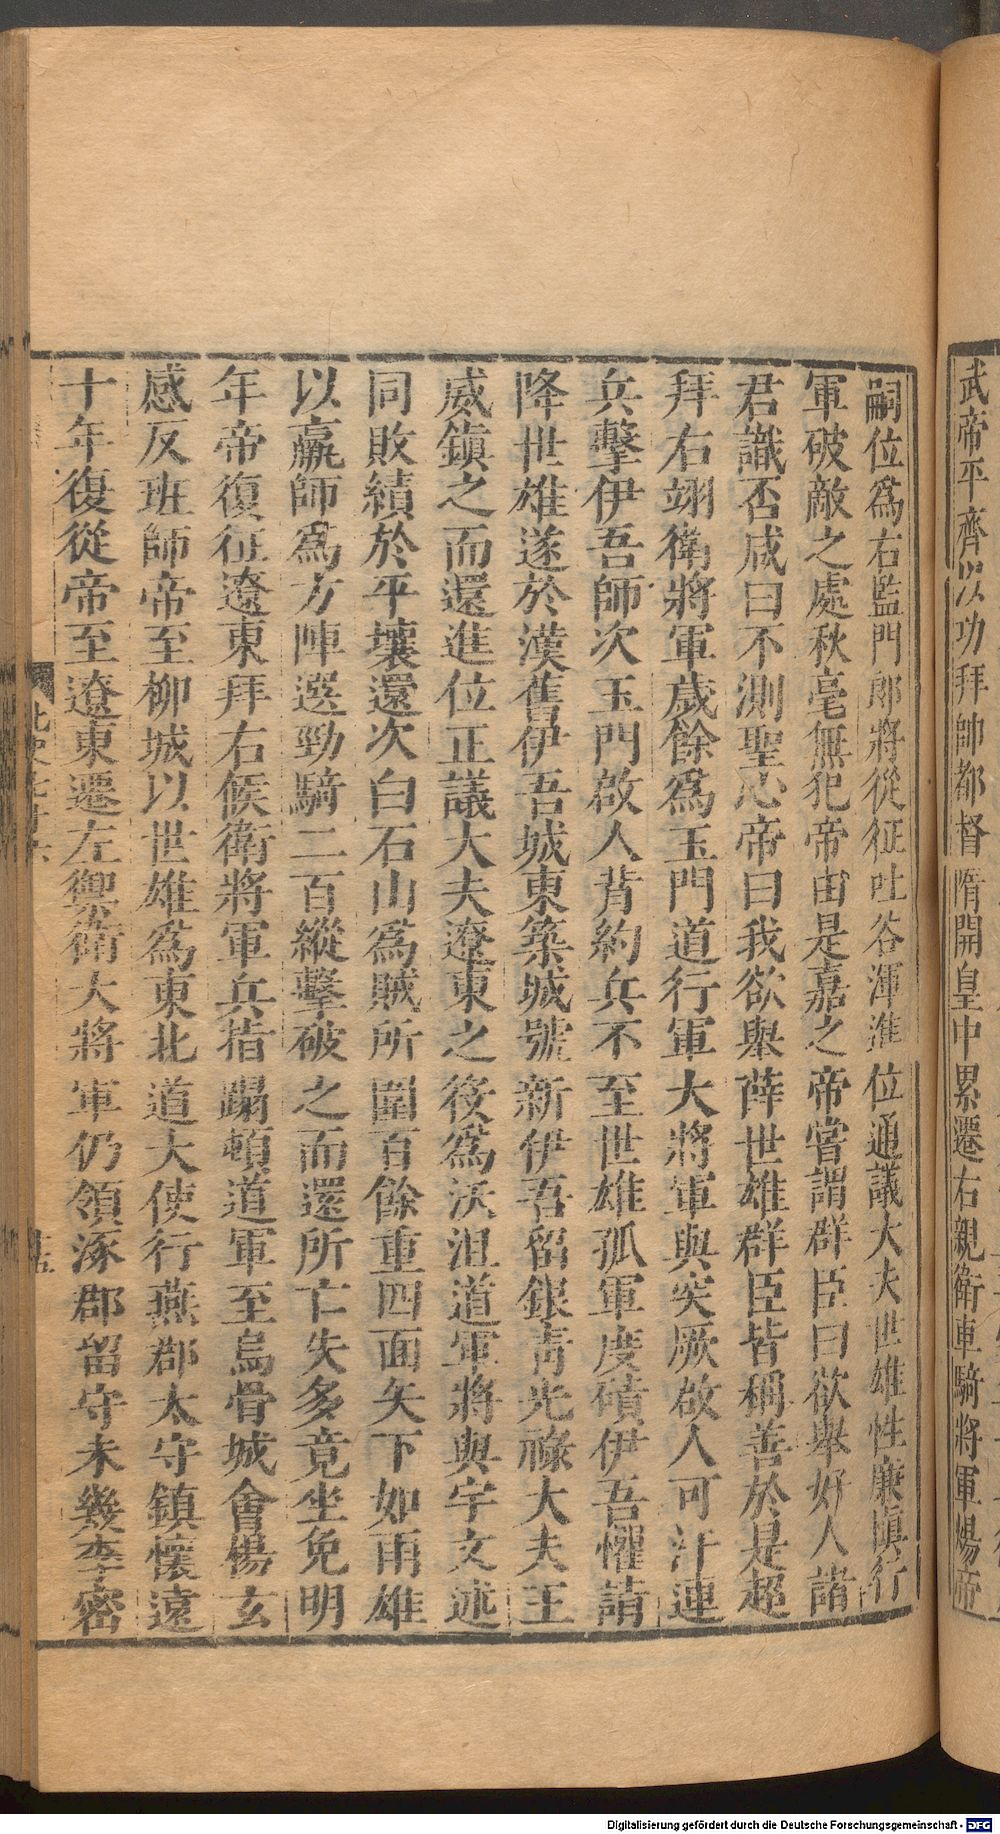 武帝平齊以功拜帥都督隋開皇中累遷右親衛車騎將軍煬帝
嗣位爲右監門郎將從征吐谷渾進位通議大夫世雄性廉慎行
軍破敵之處秋毫無犯帝由是嘉之帝嘗謂群臣曰欲舉好人諸
君識否咸曰不測聖心帝曰我欲舉薛世雄群臣皆稱善於是超
拜右翊衛將軍歲餘爲玉門道行軍大將軍與突厥啟人可汗連
兵擊伊吾師次玉門啟人背約兵不至世雄孤軍度磧伊吾懼請
降世雄遂於漢舊伊吾城東築城號新伊吾留銀青光祿大夫王
威鎮之而還進位正議大夫遼東之役爲沃沮道軍將與宇文述
同敗績於平壤還次白石山爲賊所圍百餘重四面矢下如雨雄
以羸師爲方陣選勁騎二百縱擊破之而還所亡失多竟坐免明
年帝復征遼東拜右候衛將軍兵指蹋頓道軍至烏骨城會楊玄
感反班師帝至柳城以世雄爲東北道大使行燕郡太守鎮懷遠
十年復從帝至遼東遷左禦衛大將軍仍領涿郡留守未幾李密
Digitalisierung gefördert durch die Deutsche Forschungsgemeinschaft - DFG